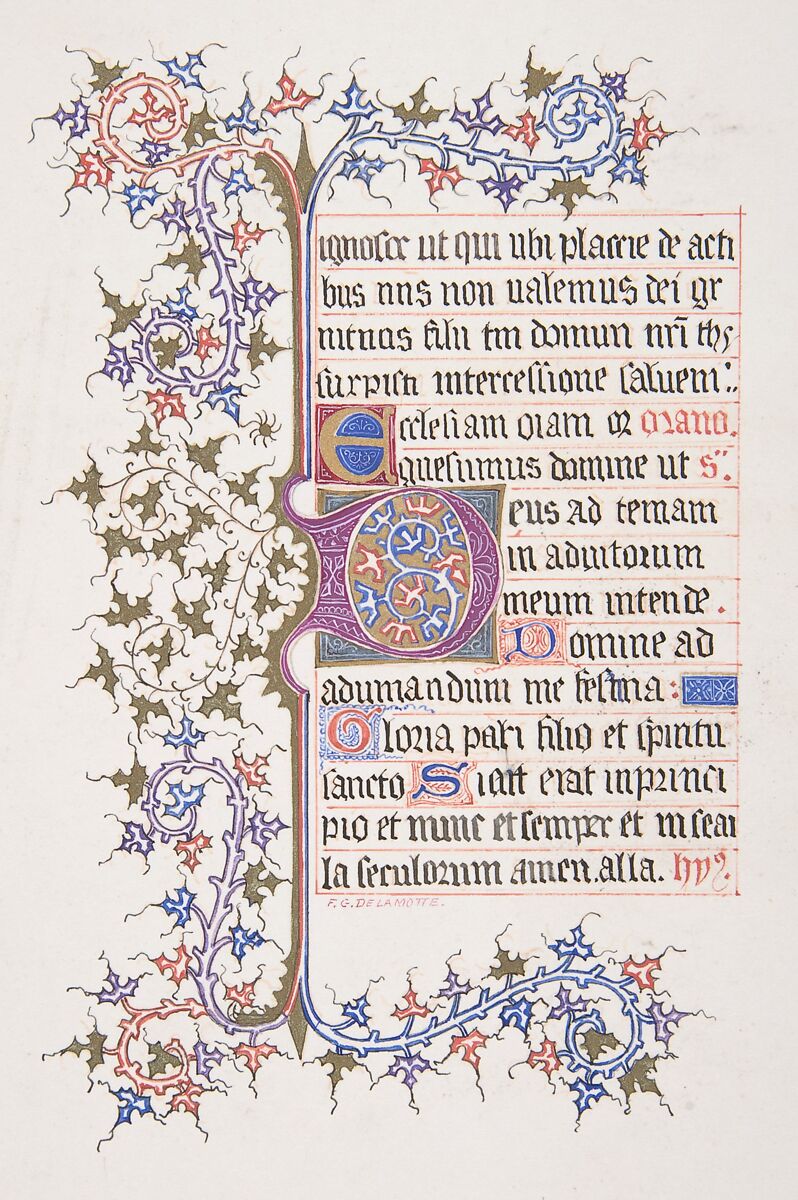 ignosce ut qui ubi placere de acti
bus nns non ualemus dei ge
nitricis filii tm domini nrĩ ihs
xpisti intercessione saluem
Ecclesiam oram or orano.
quesumus domine ut s
Deus ad temam
in aduitorum
meum intende.
Domine ad
adumandum me festina:
Gloria patri filio et spiritu
sancto Sicut erat inprinci
pio et nunc et semper et in
la seculorum amen.alla. hy
F. G. DELAMOTTE.